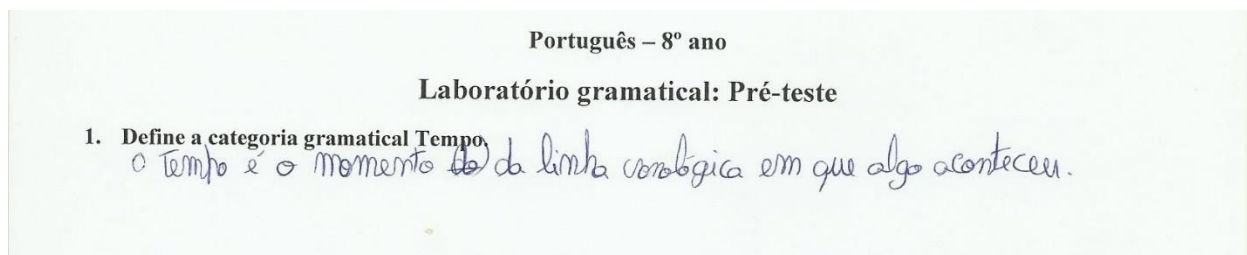 Português – 8º ano
Laboratório gramatical: Pré-teste
1. Define a categoria gramatical Tempo.
O Tempo é o momento da linha conológica em que algo aconteceu.